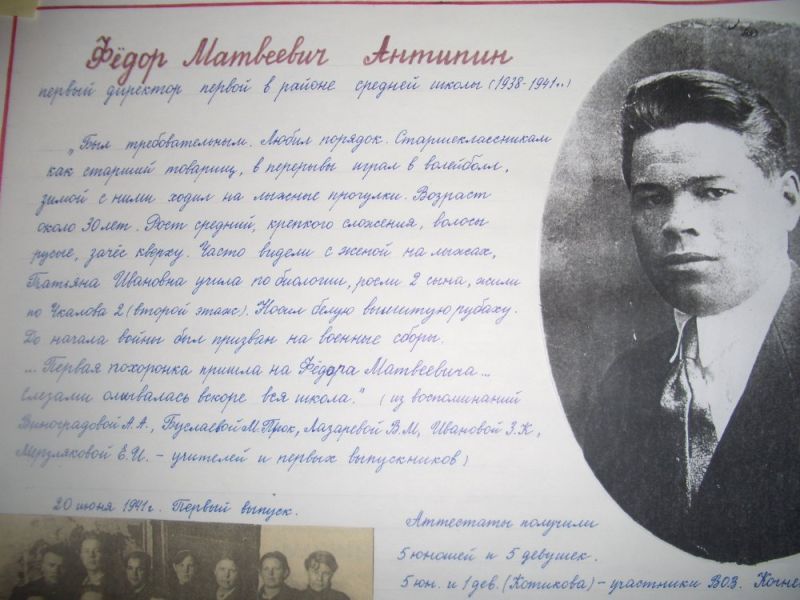 Фёдор Матвеевич Антипин
первый директор первой в районе средней школы (1938-1941гг.)
„Был требовательным. Любил порядок. Старшеклассникам
как старший товарищ, в перерывы играл в волейболл,
зимой с ними ходил на лыжные прогулки. Возраст
около 30 лет. Рост средний, крепкого сложения, волосы
русые, зачёс кверху. Часто видели с женой на лыжах,
Татьяна Ивановна учила по биологии, росли 2 сына, жили
по Чкалова 2 (второй этаж). Носил белую вышитую рубаху.
До начала войны был призван на военные сборы.
... Первая похоронка пришла на Фёдора Матвеевича...
Слезами омывалась вскоре вся школа." (из воспоминаний
Виноградовой А.А., Буслаевой М. Лазаревой В.М, Ивановой З.К,
Мерзляковой Е.И. - учителей и первых выпускников)
20 июня 1941г. Первый выпуск.
Аттестаты получили
5 юношей и 5 девушек.
5 юн. и 1 дев. (Котикова) - участники В.О.В.